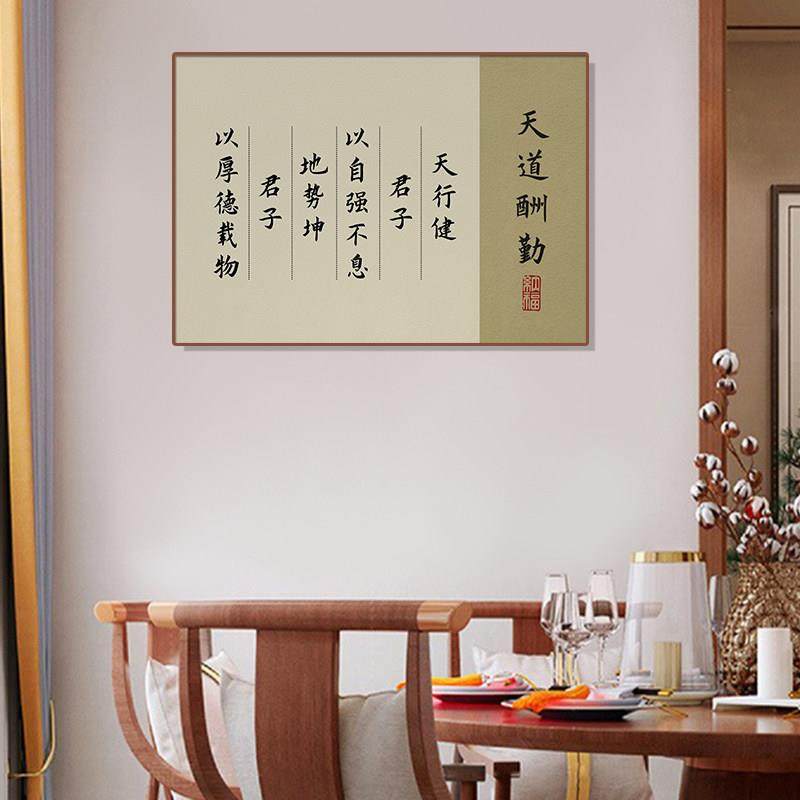 天道酬勤
纳福
天行健
君子
以自强不息
地势坤
君子
以厚德载物